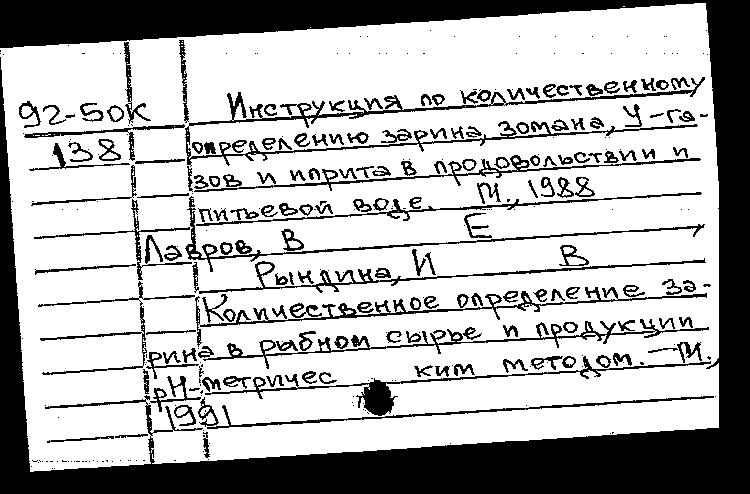 92-50К Инструкция по количественному
138 определению зарина, зомана, У-га-
зов и иприта в продовольствии и
питьевой воде. М., 1988
Лавров, В Е ,
Рындина, И В
Количественное определение за-
рина в рыбном сырье и продукции
рН-метричес ким методом. — М.,
1991